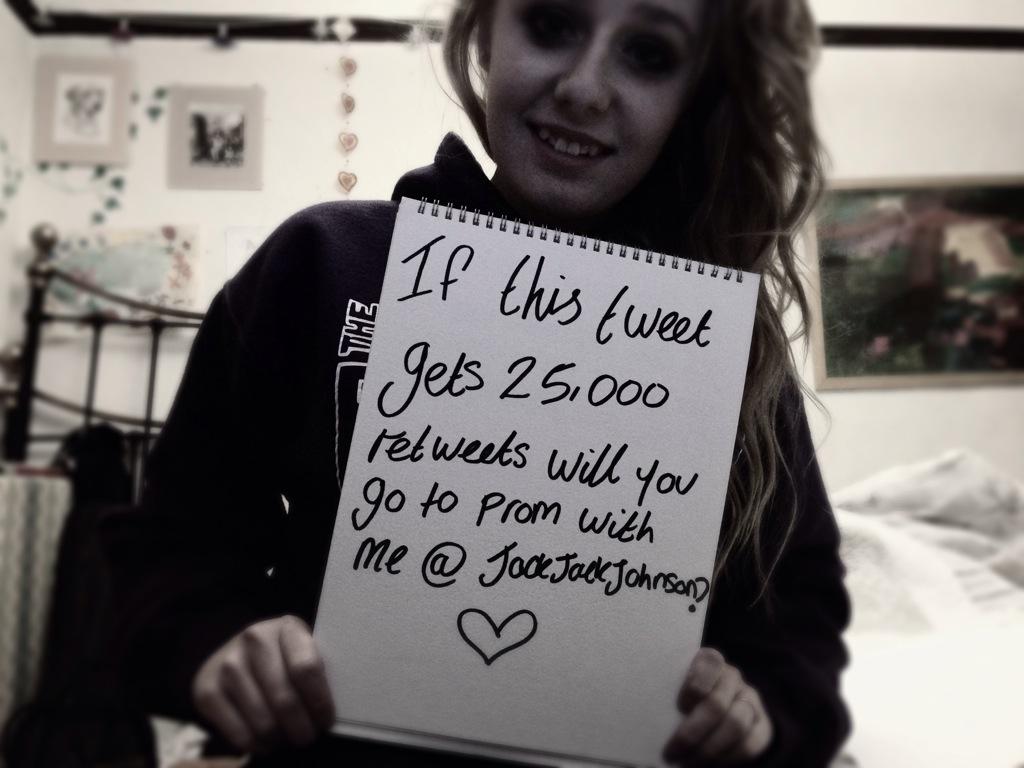 If this tweet
gets 25,000
retweets will you
go to prom with
me @ JackJackJohnson?
THE